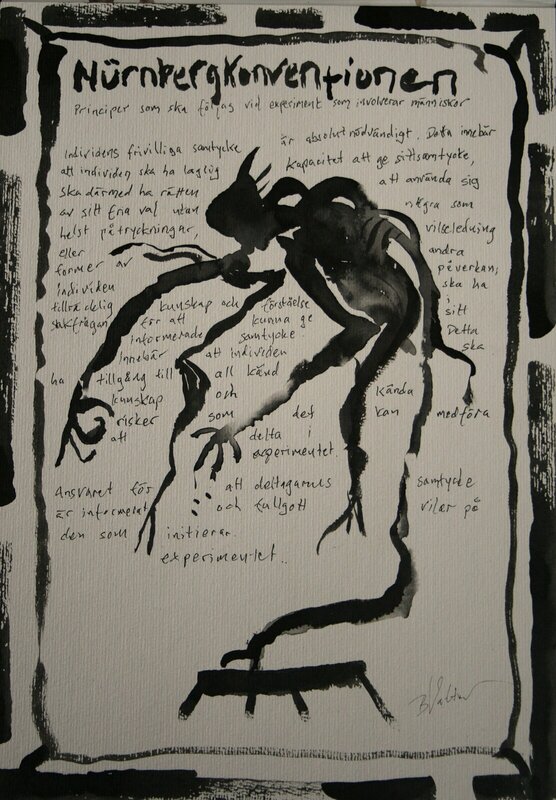 Nürnbergkonventionen
Principer som ska följas vid experiment som involverar människor
Individens frivilliga samtycke är absolut nödvändigt. Detta innebär
att individen ska ha laglig kapacitet att ge sitt samtycke,
ska därmed ha rätten att använda sig
av sitt fria val utan några som
helst påtryckningar, vilseledning
eller andra
former av påverkan;
individen ska ha
tillräcklig kunskap och förståelse i
sakfrågan för att kunna ge sitt
informerade samtycke. Detta
innebär att individen ska
ha tillgång till all känd
kunskap och kända
risker som det kan medföra
att delta i
experimentet.
Ansvaret för att deltagarens samtycke
är informerat och fullgott vilar på
den som initierar
experimentet..